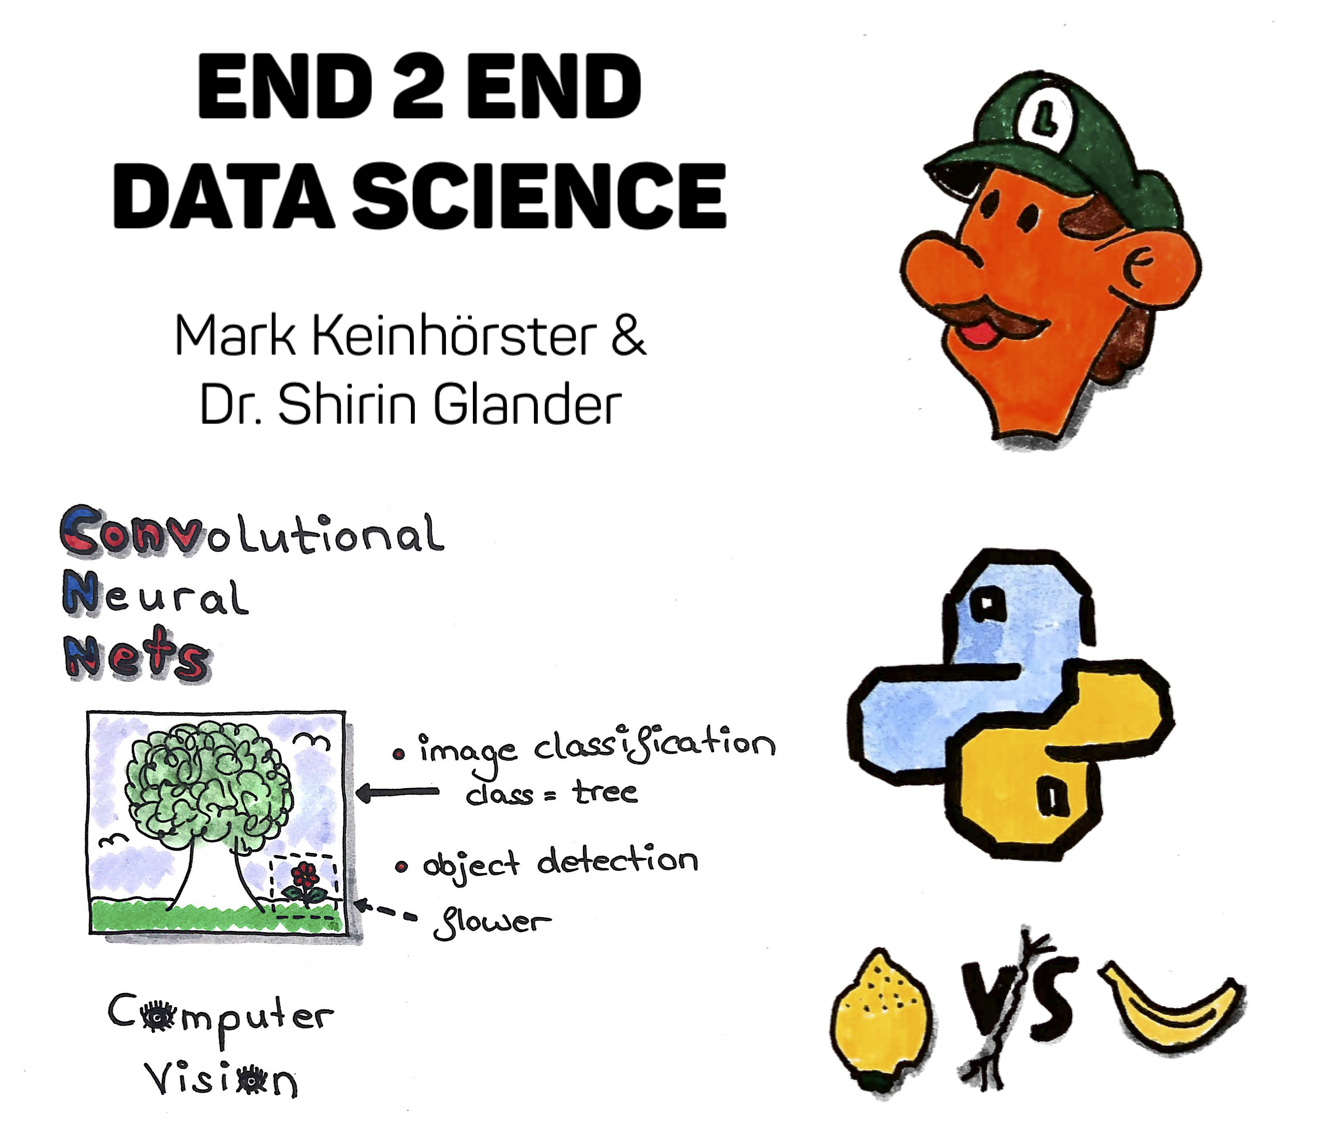 END 2 END
DATA SCIENCE
Mark Keinhörster &
Dr. Shirin Glander
L
Convolutional
Neural
Nets
• image classification
class = tree
• object detection
flower
Computer
Vision
VS